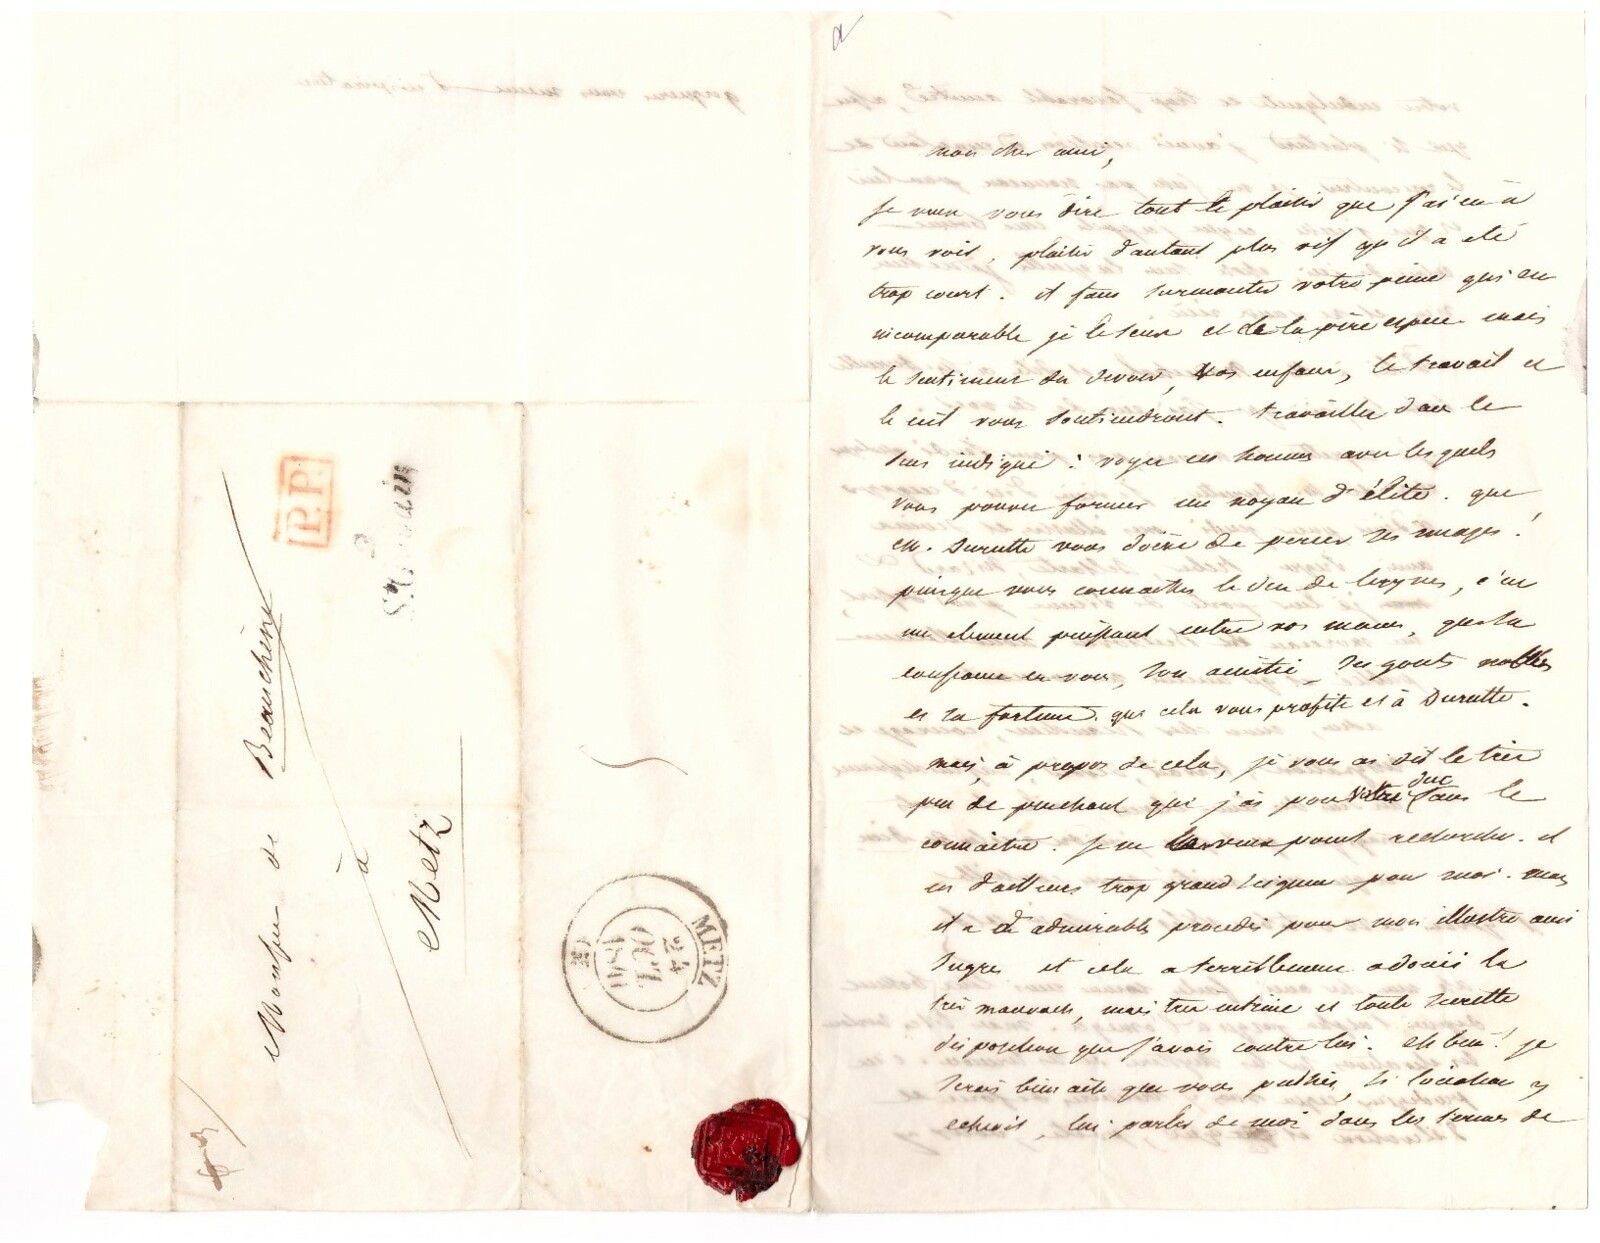 P.P.
Monsieur de Beauchêne
à
Metz
METZ
24
OCT.
1841
mon cher ami,
je veux vous dire tout le plaisir que j'ai eu à
vous voir, plaisir d'autant plus vif qu'il a été
trop court. il faut surmonter votre peine qui est
incomparable je le sens et de la pire espece. mais
le sentiment du devoir, vos enfans, le travail et
le ciel vous soutiendront. travaillez dans le
sens indiqué : voyez ces hommes avec lesquels
vous pouvez former un noyau d'élite. que
M. Durutte vous doive de percer ses nuages !
puisque vous connaissez le duc de luynes, c'est
un element puissant entre vos mains, que sa
confiance en vous, son amitié, ses gouts nobles
et sa fortune. que cela vous profite et à Durutte.
mais, à propos de cela, je vous ai dit le très
peu de penchant que j'ai pour votre duc sans le
connaitre. je ne le veux point rechercher. il
est d'ailleurs trop grand seigneur pour moi. mais
il a d'admirables procedés pour mon illustre ami
Ingres et cela a terriblement adouci la
très mauvaise, mais très intime et toute secrette
disposition que j'avais contre lui. eh bien ! je
serais bien aise que vous pussiez, si l'occasion y
echeoit, lui parler de moi dans les termes de